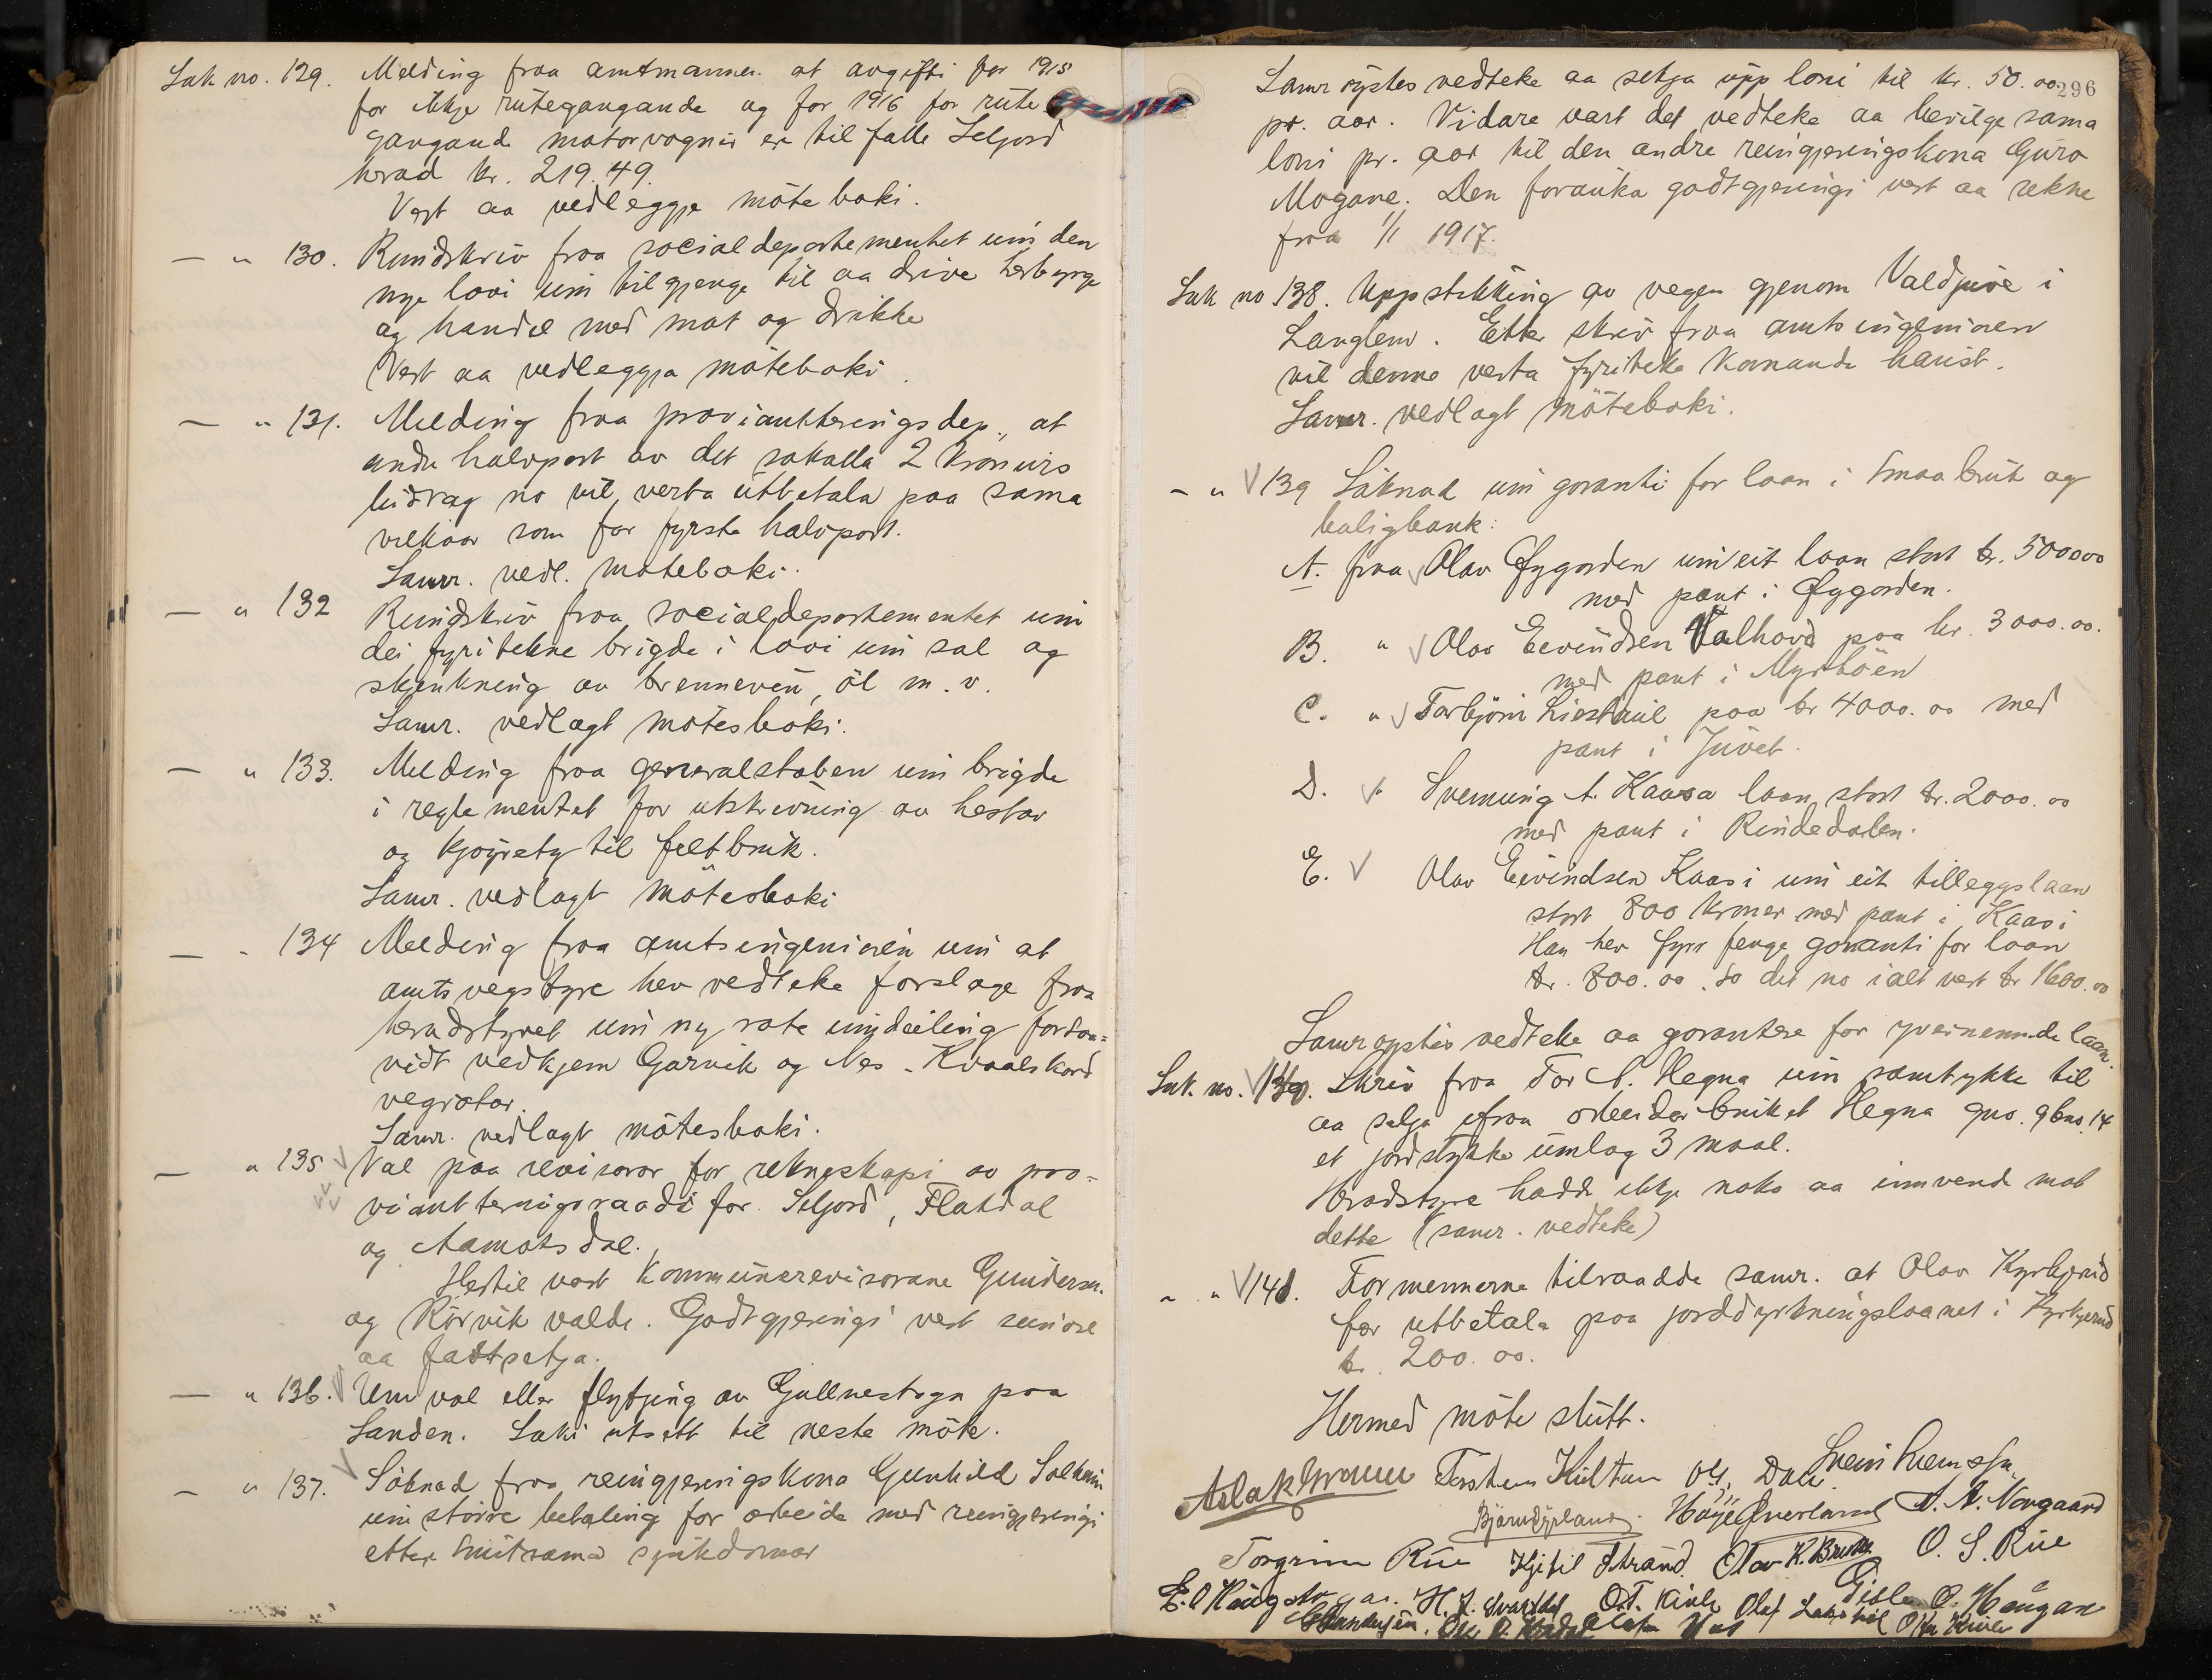 Sak no. 129. Melding fraa amtmannen at avgifti for 1915
for ikkje rutegangande og for 1916 for rute
gangand motorvognir er til falle Seljord
herad kr. 219.49.
Vert aa vedleggje møteboki.
— " 130. Rundskriv fraa socialdepartementet um den
nye lovi um tilgjenge til aa drive herbyrge
og handel med mat og drikke
Vert aa vedleggja møteboki.
— " 131. Melding fraa provianteringsdep., at
andre halvpart av det sokalla 2 kronurs
bidrag no vil verta utbetala paa sama
vilkaar som for fyrste halvpart.
Samr. vedl. møteboki.
— " 132 Rundskriv fraa socialdepartementet um
dei fyritekne brigde i lovi um sal og
skjenkning av brennevin, øl m.v.
Samr. vedlagt møtesboki.
— " 133. Melding fraa generalstaben um brigde
i reglementet for utskrivning av hestar
og kjøyrety til feltbruk.
Samr. vedlagt møtesboki
— " 134 Melding fraa amtsingeniøren um at
amtsvegstyre hev vedteke forslage fraa
heradstyret um ny rote umdeiling forsaa-
vidt vedkjem Garvik og Nes - Kvaalskard
vegrotar.
Samr. vedlagt møtesboki.
— " 135 Val paa revisorar for rekneskapi av pro-
vianteringsraadi for Seljord, Flatdal
og Aamotsdal.
Hertil vart kommunerevisorane Gundersen
og Rörvik valde. Godtgjeringi vert seniore
aa fastsetja.
— " 136. Um val eller flytjing av Gullnestogn paa
Sanden. Saki utsett til neste møte.
— " 137. Søknad fraa reingjeringskona Gunhild Solheim
um større betaling for arbeide med reingjeringi
etter smitsame sjukdomar
296
Samrøystes vedteke aa setja upp løni til kr. 50.00
pr. aar. Vidare vart det vedteke aa bevilge sama
løni pr. aar til den andre reingjeringskona Guro
Mogane. Den forauka godtgjeringi vert aa rekne
fraa 1/1 1917.
Sak no 138. Uppstikking av vegen gjenom Valdjuve i
Langlem. Etter skriv fraa amtsingeniøren
vil denne verta fyriteke komande haust.
Samr. vedlagt møteboki.
— " 139 Søknad um garanti for laan i Smaabruk og
boligbank:
A. fraa Olav Øygarden um eit laan stort kr. 5000 00
med pant i Øygarden.
B. " Olav Eevindsen Valhovd paa kr. 3000.00.
med pant i Myrbøen
C. " Torbjørn Liestaul paa kr 4000.00 med
pant i Juvet.
D. " Svenung A. Kaasa laan stort kr. 2000.00
med pant i Rindedalen.
E. Olav Eivindsen Kaasi um eit tilleggslaan
stort 800 kroner med pant i Kaasi
Han hev fyrr fenge garanti for laan
kr. 800.00. So det no ialt vert kr 1600.00
Samrøystes vedteke aa garantere for yvernemnde laan.
Sak. no. 140. Skriv fraa Tor A. Hegna um samtykke til
aa selja ifraa arbeidarbruket Hegna gno. 9 bno. 14
et jordstykke umlag 3 maal.
Heradstyre hadde ikkje noko aa innvende mot
dette (samr. vedteke)
" " 141. Formennerne tilraadde samr. at Olav Kyrkjerud
fær utbetala paa jorddyrkningslaanet i Kyrkjerud
kr. 200.00.
Hermed møte slutt.
Torstein Kultan Ol. Dale Svein
Bjørn Dyrland. Høye Øverland A. N. Norgaard
Torgrim Rue Kjetil Strand Olav K. O. S. Rue
H. J. Svartdal O.T. Kivle Olaf Gisle O. Haugan